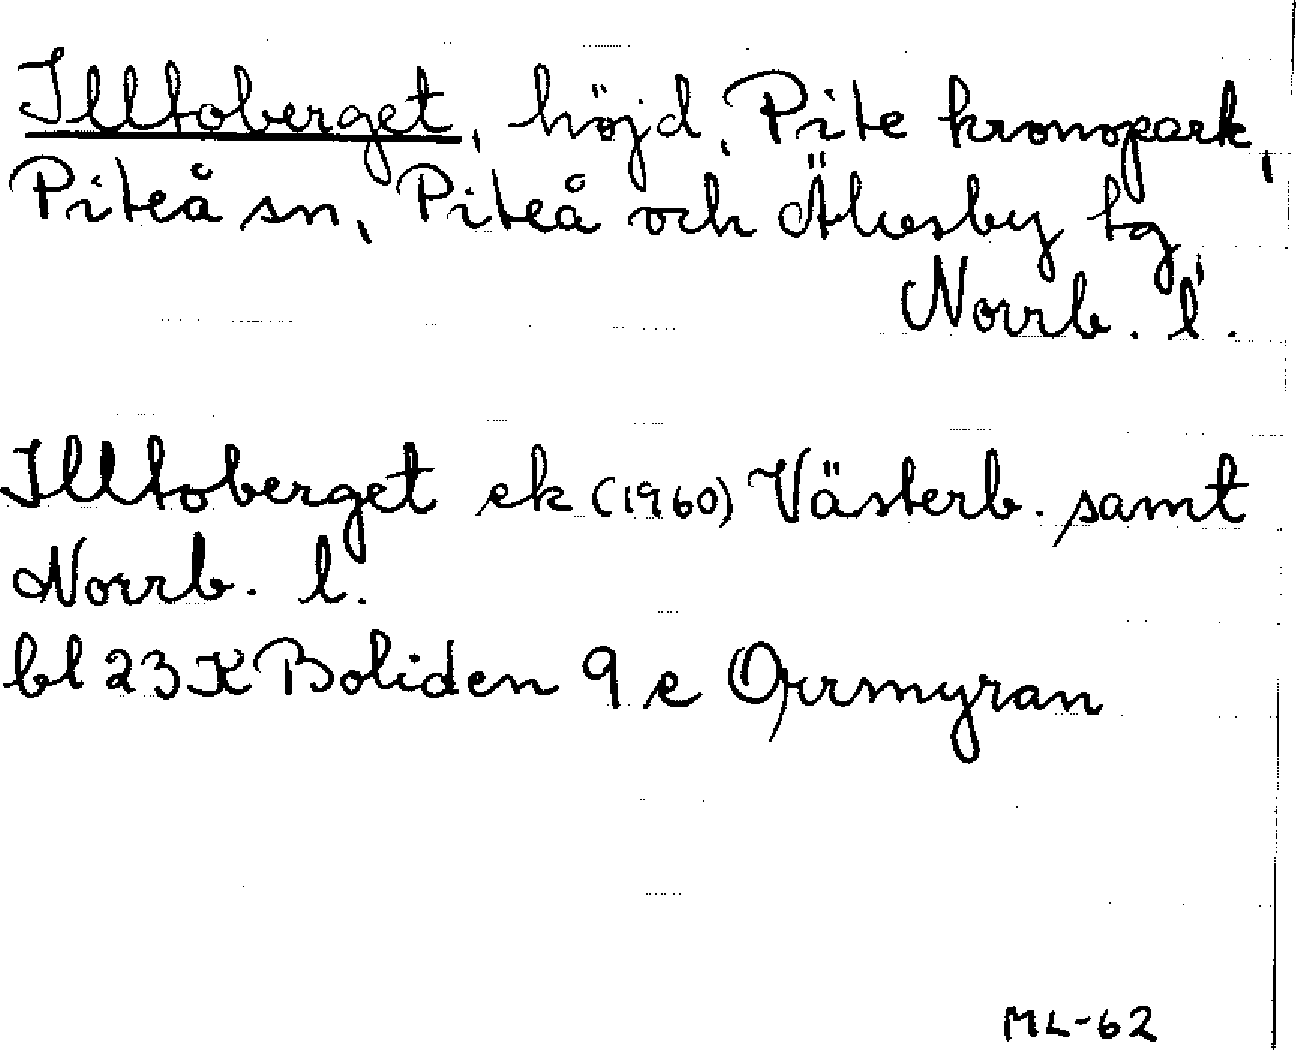 Illtoberget, höjd, Pite kronopark,
Piteå sn, Piteå och Älvsby tg
Norrb. l.
Illtoberget ek (1960) Västerb. samt
Norrb. l.
bl 23 K Boliden 9 e Orrmyran
ML-62